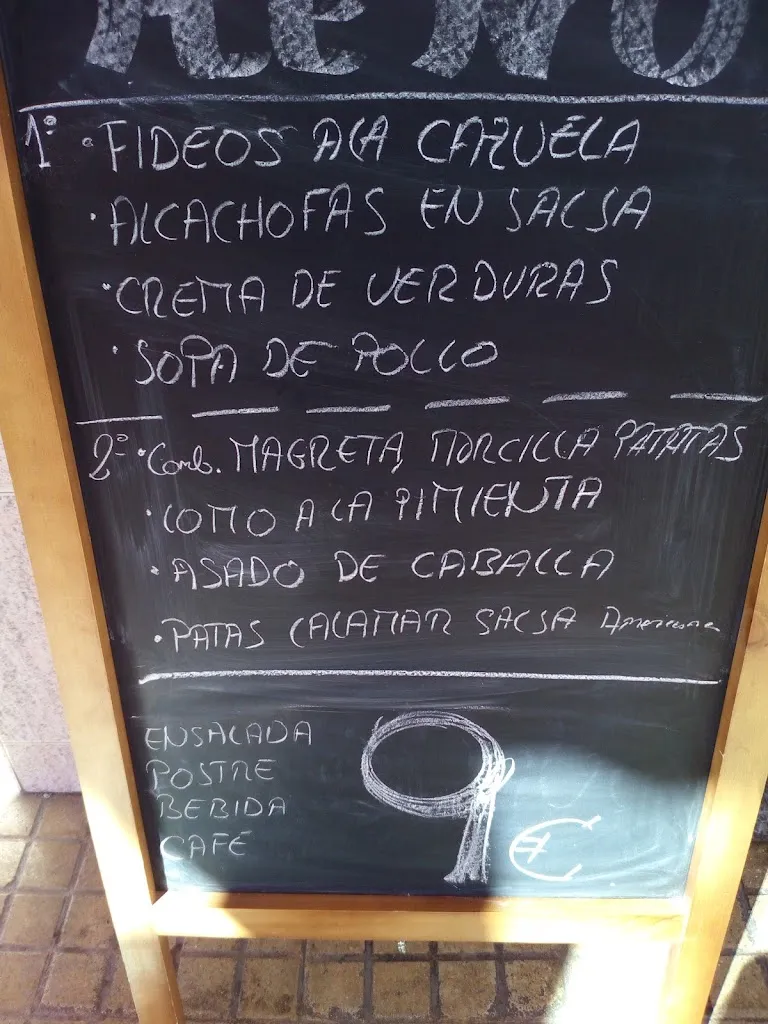 MENÚ
1º · FIDEOS A LA CAZUELA
· ALCACHOFAS EN SALSA
· CREMA DE VERDURAS
· SOPA DE POLLO
2º · Comb. MAGRETA, MORCILLA PATATAS
· LOMO A LA PIMIENTA
· ASADO DE CABALLA
· PATAS CALAMAR SALSA Americana
ENSALADA
POSTRE
BEBIDA
CAFÉ
9 €